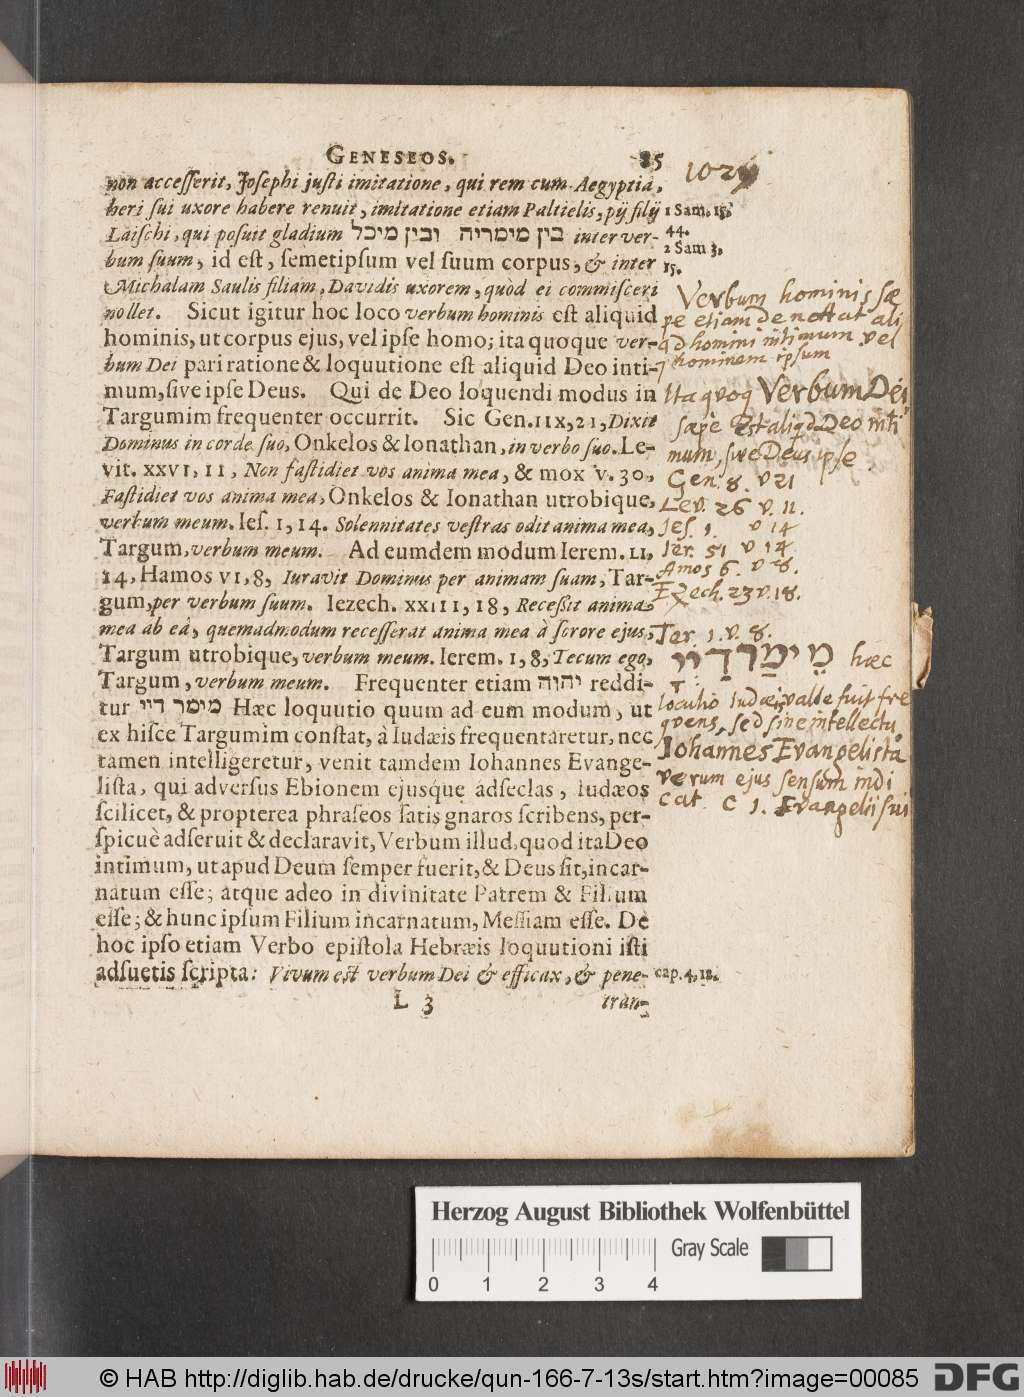 GENESEOS. 85
1029
non accesserit, Josephi justi imitatione, qui rem cum Aegyptia,
heri sui uxore habere renuit, imitatione etiam Paltielis, pij filij
Laischi, qui posuit gladium בין מימריה ובין מיכל inter ver-
bum suum, id est, semetipsum vel suum corpus, & inter
Michalam Saulis filiam, Davidis uxorem, quòd ei commisceri
nollet. Sicut igitur hoc loco verbum hominis est aliquid
hominis, ut corpus ejus, vel ipse homo; ita quoque ver-
bum Dei pari ratione & loquutione est aliquid Deo inti-
mum, sive ipse Deus. Qui de Deo loquendi modus in
Targumim frequenter occurrit. Sic Gen. IIX, 21, Dixit
Dominus in corde suo, Onkelos & Ionathan, in verbo suo. Le-
vit. XXVI, 11, Non fastidiet vos anima mea, & mox v. 30,
Fastidiet vos anima mea, Onkelos & Ionathan utrobique,
verbum meum. Ies. 1, 14. Solennitates vestras odit anima mea,
Targum, verbum meum. Ad eumdem modum Ierem. LI,
14, Hamos VI, 8, Iuravit Dominus per animam suam, Tar-
gum, per verbum suum. Iezech. XXIII, 18, Recessit anima
mea ab eâ, quemadmodum recesserat anima mea à sorore ejus,
Targum utrobique, verbum meum. Ierem. 1, 8, Tecum ego,
Targum, verbum meum. Frequenter etiam יהוה reddi-
tur מימר דיי Hæc loquutio quum ad eum modum, ut
ex hisce Targumim constat, à Iudæis frequentaretur, nec
tamen intelligeretur, venit tamdem Iohannes Evange-
lista, qui adversus Ebionem ejusque adseclas, Iudæos
scilicet, & propterea phraseos satis gnaros scribens, per-
spicuè adseruit & declaravit, Verbum illud, quod ita Deo
intimum, ut apud Deum semper fuerit, & Deus sit, incar-
natum esse; atque adeo in divinitate Patrem & Filium
esse; & hunc ipsum Filium incarnatum, Messiam esse. De
hoc ipso etiam Verbo epistola Hebræis loquutioni isti
adsuetis scripta: Vivum est verbum Dei & efficax, & pene-
L 3 tran-
1 Sam. 15.
44.
2 Sam 3.
15.
Verbum hominis sæ
pe etiam denottat ali
qd homini intimum vel
hominem ipsum
Ita quoq Verbum Dei
sæpe Est aliqd Deo inti
mum, sive Deus ipse
Gen. 8. v 21
Lev. 26 v. 11.
Jes. 1. v 14
Jer. 51 v 14
Amos 6. v 8.
Ezech. 23 v. 18.
Jer. 1. v. 8.
מימר דיי hæc
loculio Iudæis valde fuit fre
quens, sed sine intellectu
Johannes Evangelista
verum ejus sensum indi
cat. C 1. Evangelii sui
cap. 4, 12.
Herzog August Bibliothek Wolfenbüttel
Gray Scale
0 1 2 3 4
© HAB http://diglib.hab.de/drucke/qun-166-7-13s/start.htm?image=00085
DFG